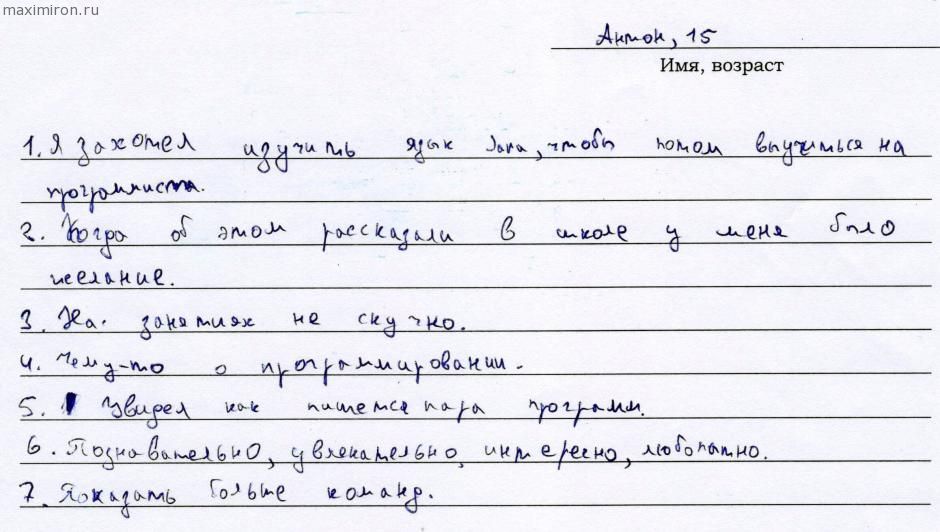 maximiron.ru
Антон, 15
Имя, возраст
1. Я захотел изучить язык Java, чтобы потом выучиться на
программиста.
2. Когда об этом рассказали в школе у меня было
желание.
3. На. занятиях не скучно.
4. Чему-то о программировании.
5. Увидел как пишется пара программ.
6. Познавательно, увлекательно, интересно, любопытно.
7. Показать больше команд.